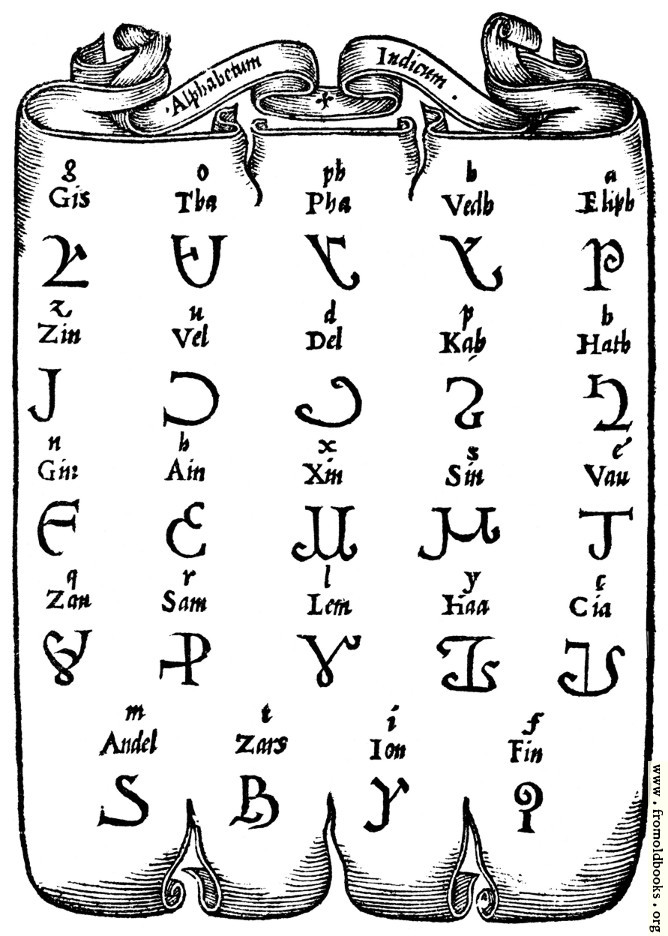 Alphabetum Indicum
g o ph b a
Gis Tha Pha Vedh Eliph
z u d p h
Zin Vel Del Kah Hath
n h x s e
Gin Ain Xin Sin Vau
q r l y ç
Zan Sam Lem Haa Cia
m t i f
Andel Zars Ion Fin
www.fromoldbooks.org